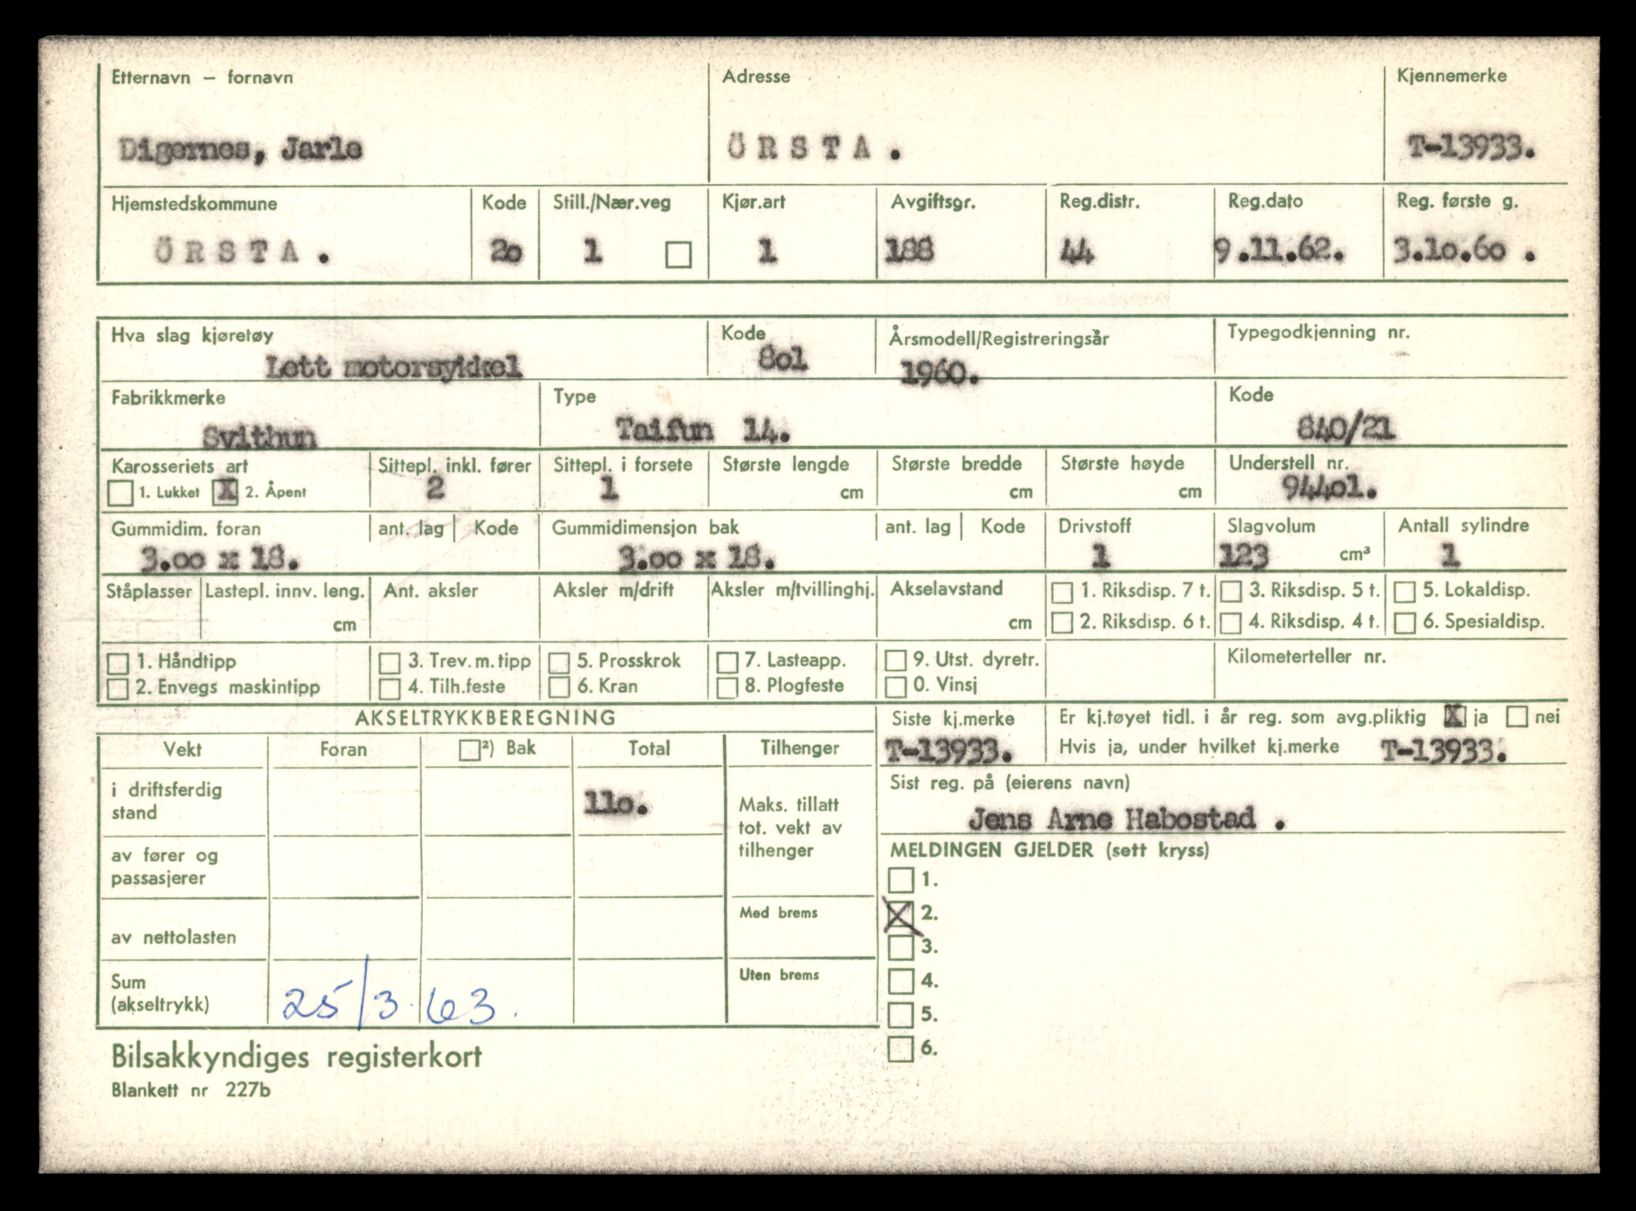 Etternavn – fornavn Adresse Kjennemerke
Digernes, Jarle ÖRSTA. T-13933.
Hjemstedskommune Kode Still./Nær.veg Kjør.art Avgiftsgr. Reg.distr. Reg.dato Reg. første g.
ÖRSTA. 2o 1 1 188 44 9.11.62. 3.1o.6o .
Hva slag kjøretøy Kode Årsmodell/Registreringsår Typegodkjenning nr.
Lett motorsykkel 8o1 1960.
Fabrikkmerke Type Kode
Svithun Taifun 14. 840/21
Karosseriets art Sittepl. inkl. fører Sittepl. i forsete Største lengde Største bredde Største høyde Understell nr.
1. Lukket X 2. Åpent 2 1 cm cm cm 944o1.
Gummidim. foran ant. lag Kode Gummidimensjon bak ant. lag Kode Drivstoff Slagvolum Antall sylindre
3.oo x 18. 3.oo x 18. 1 123 cm³ 1
Ståplasser Lastepl. innv. leng. Ant. aksler Aksler m/drift Aksler m/tvillinghj. Akselavstand 1. Riksdisp. 7 t. 3. Riksdisp. 5 t. 5. Lokaldisp.
cm cm 2. Riksdisp. 6 t. 4. Riksdisp. 4 t. 6. Spesialdisp.
1. Håndtipp 3. Trev. m. tipp 5. Prosskrok 7. Lasteapp. 9. Utst. dyretr. Kilometerteller nr.
2. Envegs maskintipp 4. Tilh.feste 6. Kran 8. Plogfeste 0. Vinsj
AKSELTRYKKBEREGNING Siste kj.merke Er kj.tøyet tidl. i år reg. som avg.pliktig X ja nei
Vekt Foran ²) Bak Total Tilhenger T-13933. Hvis ja, under hvilket kj.merke T-13933.
i driftsferdig stand 11o. Maks. tillatt tot. vekt av tilhenger Sist reg. på (eierens navn)
Jens Arne Habostad .
av fører og passasjerer MELDINGEN GJELDER (sett kryss)
1.
Med brems X 2.
av nettolasten 3.
Sum (akseltrykk) 25/3.63. Uten brems 4.
5.
Bilsakkyndiges registerkort 6.
Blankett nr 227b